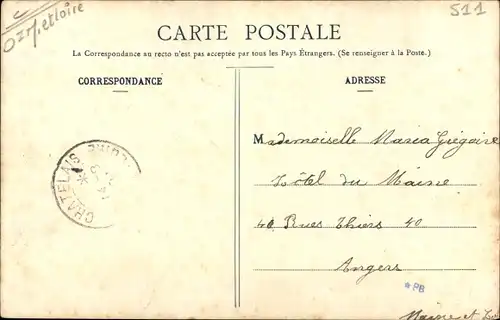 Oz Met Loire
511
CARTE POSTALE
La Correspondance au recto n'est pas acceptée par tous les Pays Étrangers. (Se renseigner à la Poste.)
CORRESPONDANCE
ADRESSE
Mademoiselle Maria Grégoire
Hôtel du Maine
40 Rue Thiers 40
Angers
Maine et Loi
CHATELAIS
*PB